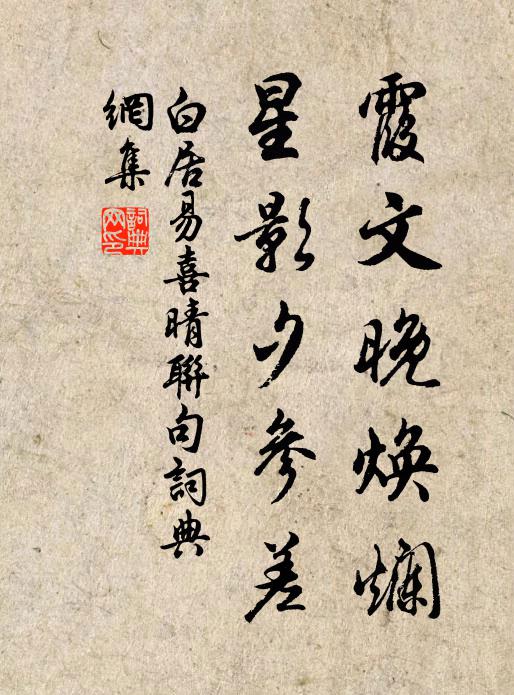 霞文晚煥爛
星影夕參差
白居易喜晴聯句詞典
網集
詞典
网印